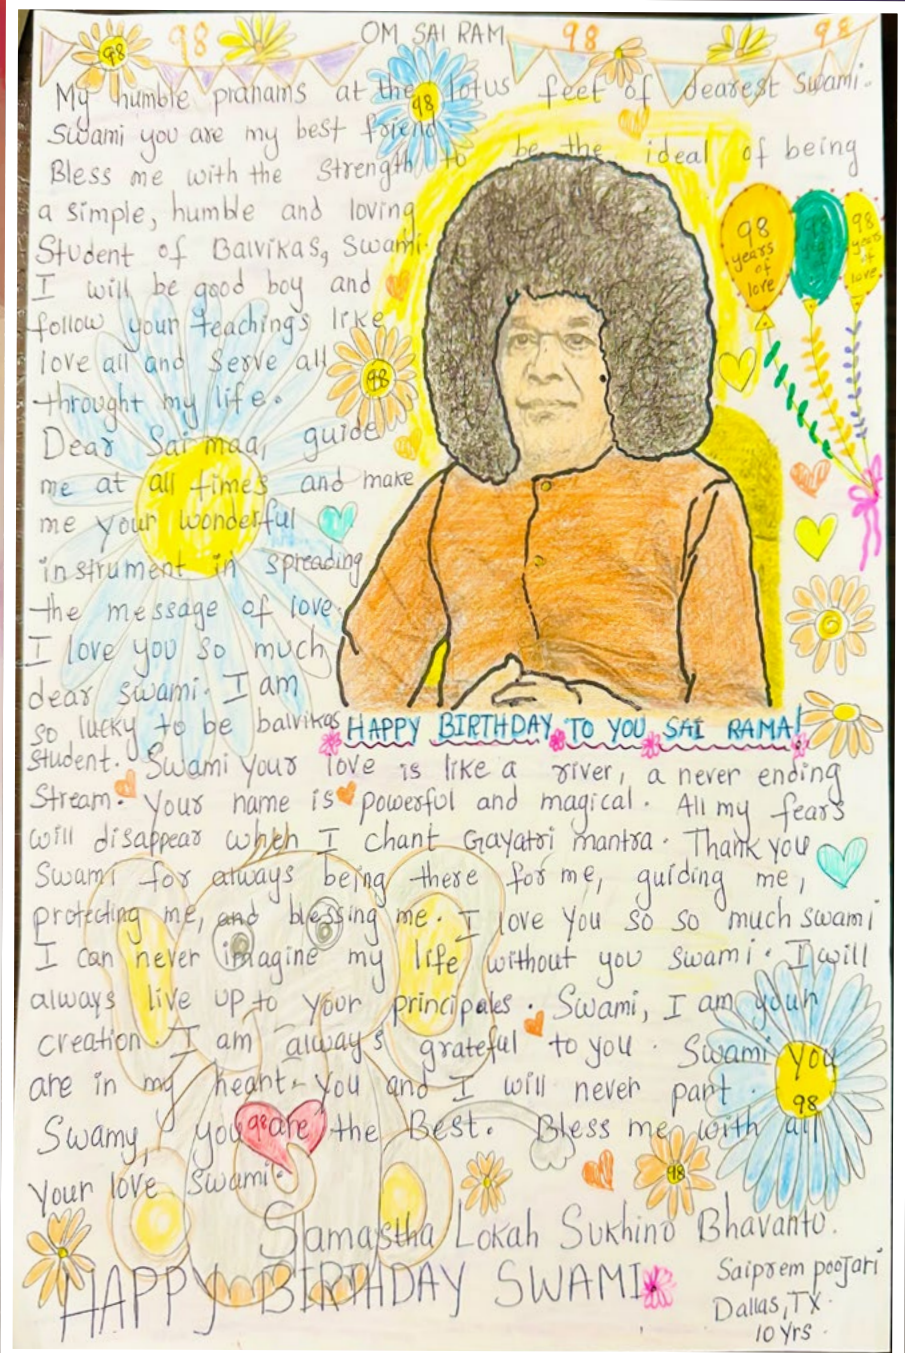 OM SAI RAM
98 98 98 98
My humble pranams at the lotus feet of dearest Swami.
98
Swami you are my best friend.
Bless me with the strength to be the ideal of being
a simple, humble and loving
Student of Balvikas, Swami.
I will be good boy and
follow your teachings like
love all and serve all
throught my life.
Dear Sai maa, guide
me at all times and make
me your wonderful
instrument in spreading
the message of love.
I love you so much
dear swami. I am
so lucky to be balvikas
student. Swami your love is like a river, a never ending
Stream. Your name is powerful and magical. All my fears
will disappear when I chant Gayatri mantra. Thank you
Swami for always being there for me, guiding me,
protecting me, and blessing me. I love you so so much swami
I can never imagine my life without you swami. I will
always live up to your principales. Swami, I am your
creation. I am always grateful to you. Swami you
are in my heart. You and I will never part.
Swamy, you are the Best. Bless me with all
your love Swami.
Samastha Lokah Sukhino Bhavantu.
HAPPY BIRTHDAY SWAMI
Saiprem poojari
Dallas, TX.
10 yrs.
98
years
of
love
98
years
of
love
98
HAPPY BIRTHDAY TO YOU SAI RAMA!
98
98
98
98